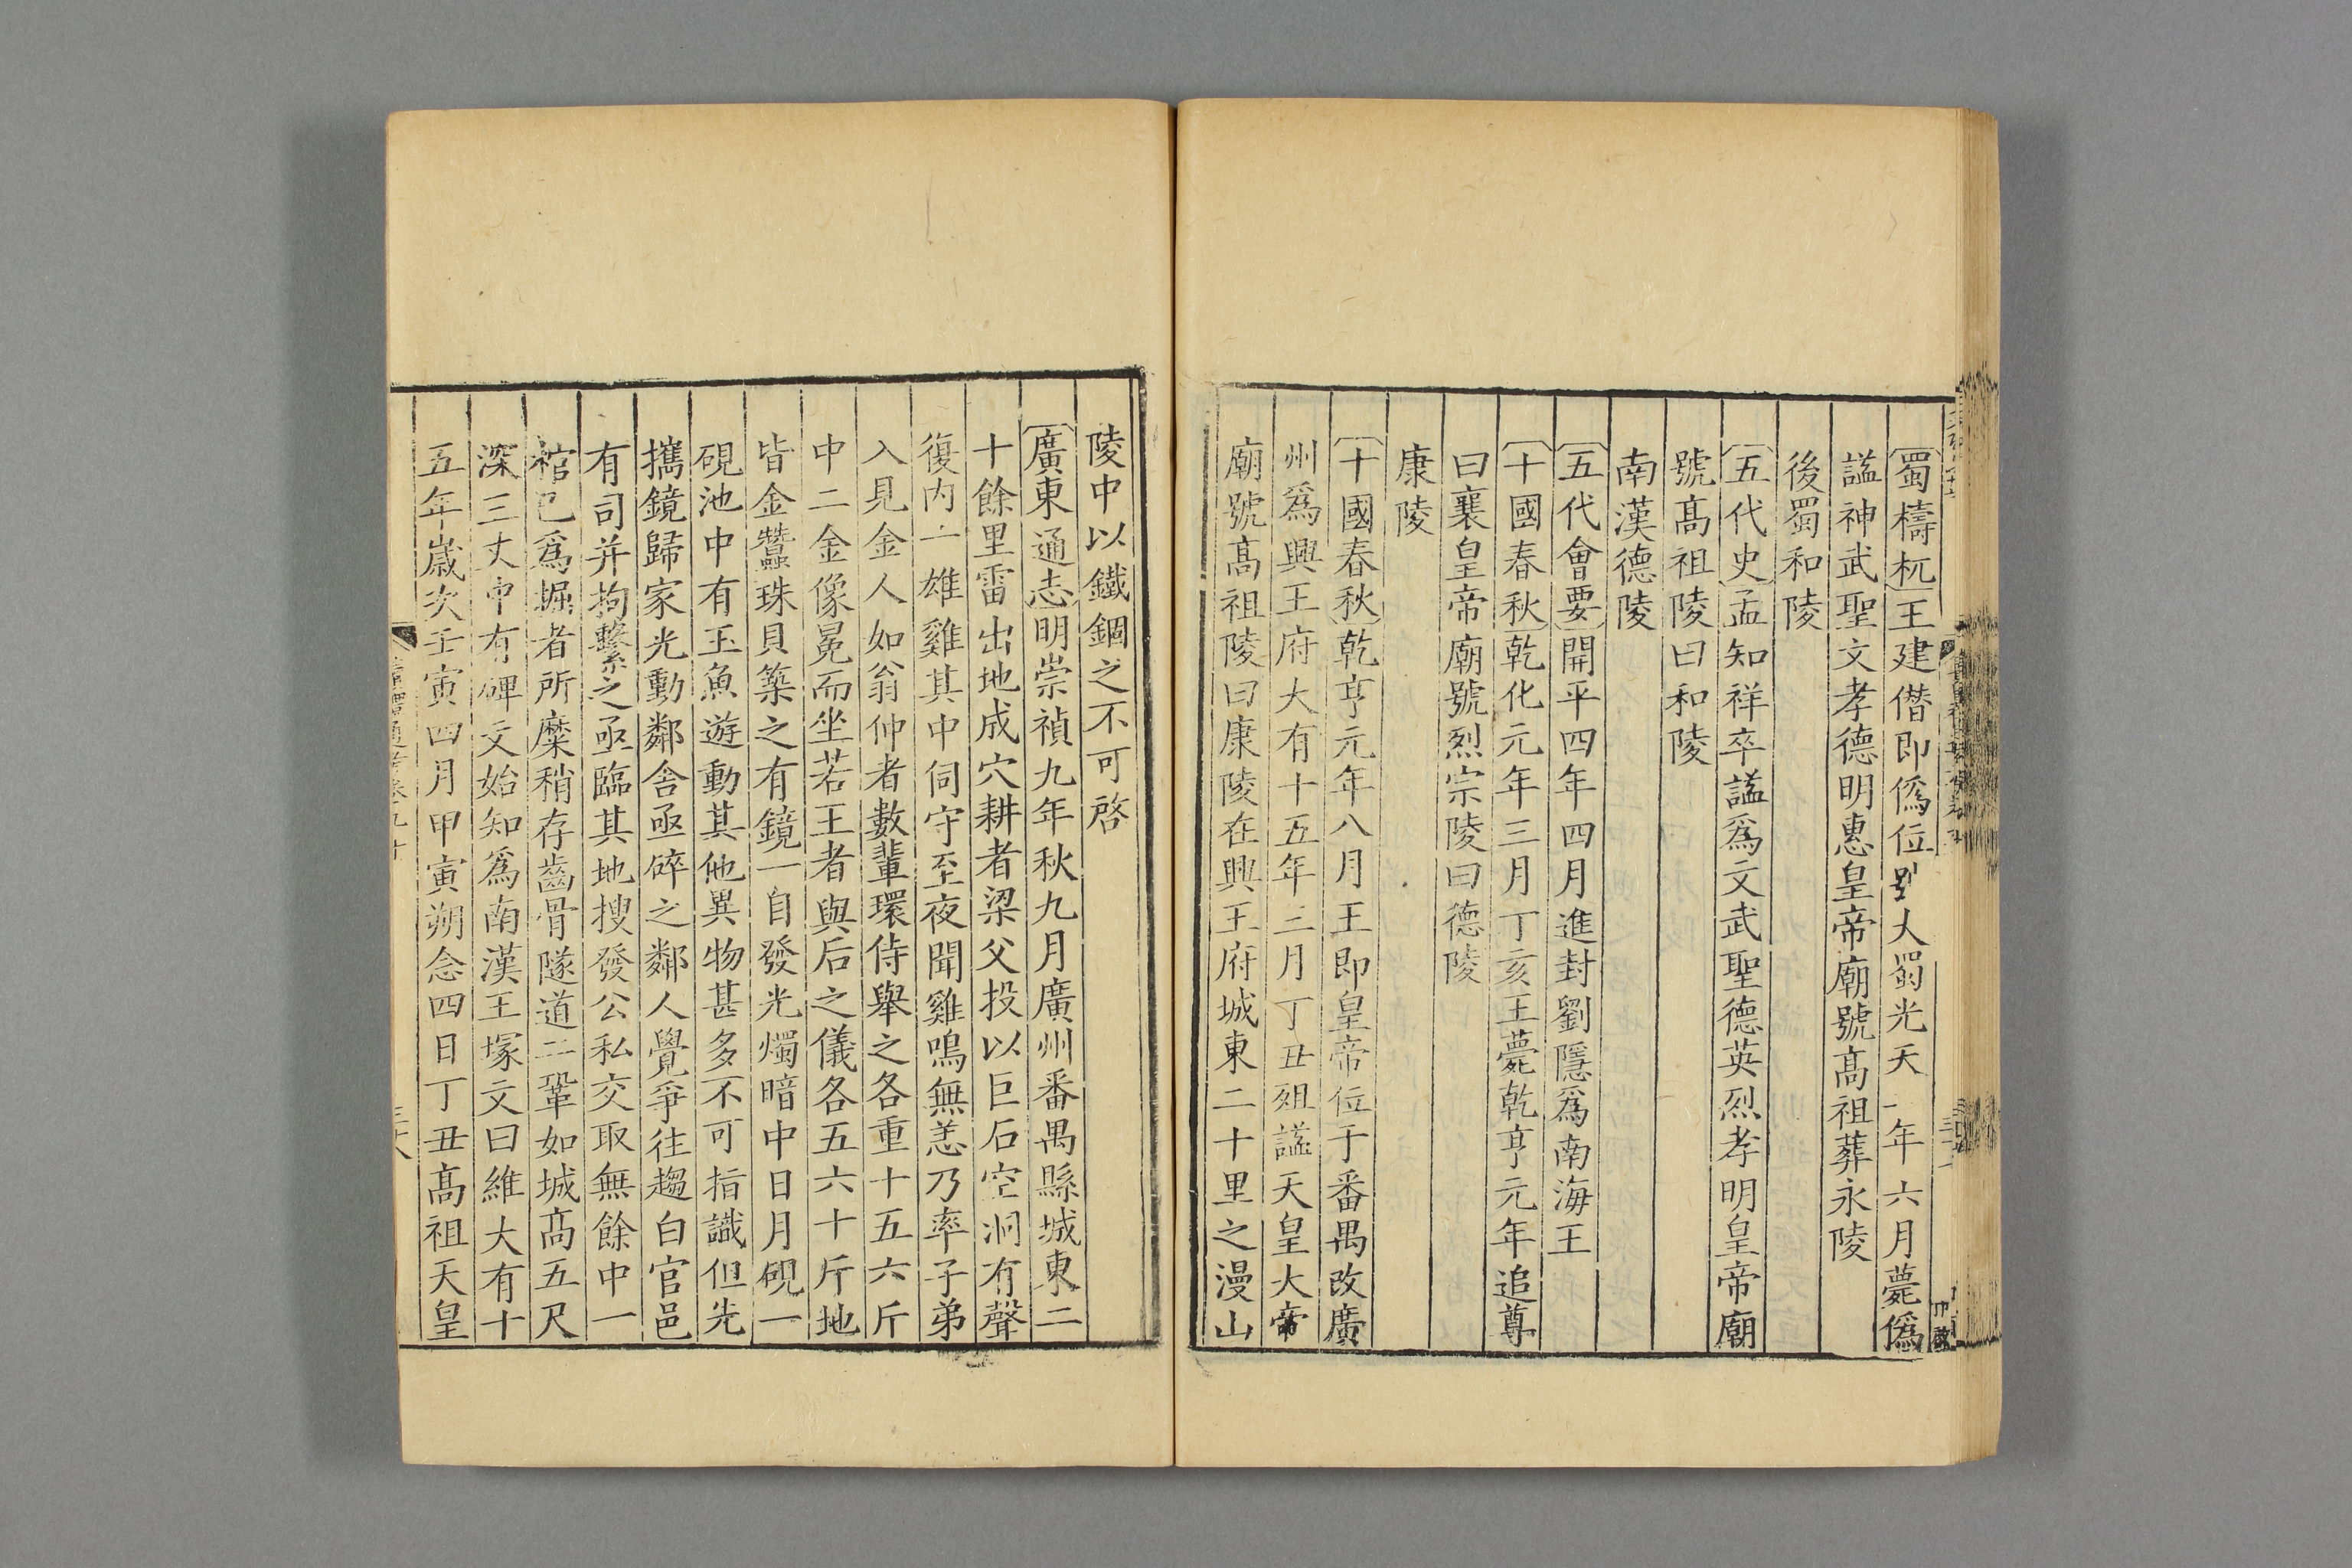 蜀檮杌王建僭即僞位號大蜀光天一年六月薨僞
諡神武聖文孝德明惠皇帝廟號髙祖葬永陵
後蜀和陵
五代史孟知祥卒諡爲文武聖德英烈孝明皇帝廟
號髙祖陵曰和陵
南漢德陵
五代會要開平四年四月進封劉隱爲南海王
十國春秋乾化元年三月丁亥王薨乾亨元年追尊
曰襄皇帝廟號烈宗陵曰德陵
康陵
十國春秋乾亨元年八月王即皇帝位于番禺改廣
州爲興王府大有十五年三月丁丑殂諡天皇大帝
廟號髙祖陵曰康陵在興王府城東二十里之漫山
陵中以鐵錮之不可啓
廣東通志明崇禎九年秋九月廣州番禺縣城東二
十餘里雷出地成穴耕者梁父投以巨石空洞有聲
復内一雄雞其中伺守至夜聞雞鳴無恙乃率子弟
入見金人如翁仲者數輩環侍舉之各重十五六斤
中二金像冕而坐若王者與后之儀各五六十斤地
皆金蠶珠貝築之有鏡一自發光燭暗中日月硯一
硯池中有玉魚遊動其他異物甚多不可指識但先
攜鏡歸家光動鄰舍亟碎之鄰人覺爭往趨白官邑
有司并拘繫之亟臨其地搜發公私交取無餘中一
棺已爲掘者所糜稍存齒骨隧道二鞏如城髙五尺
深三丈中有碑文始知爲南漢王塚文曰維大有十
五年歲次壬寅四月甲寅朔念四日丁丑髙祖天皇